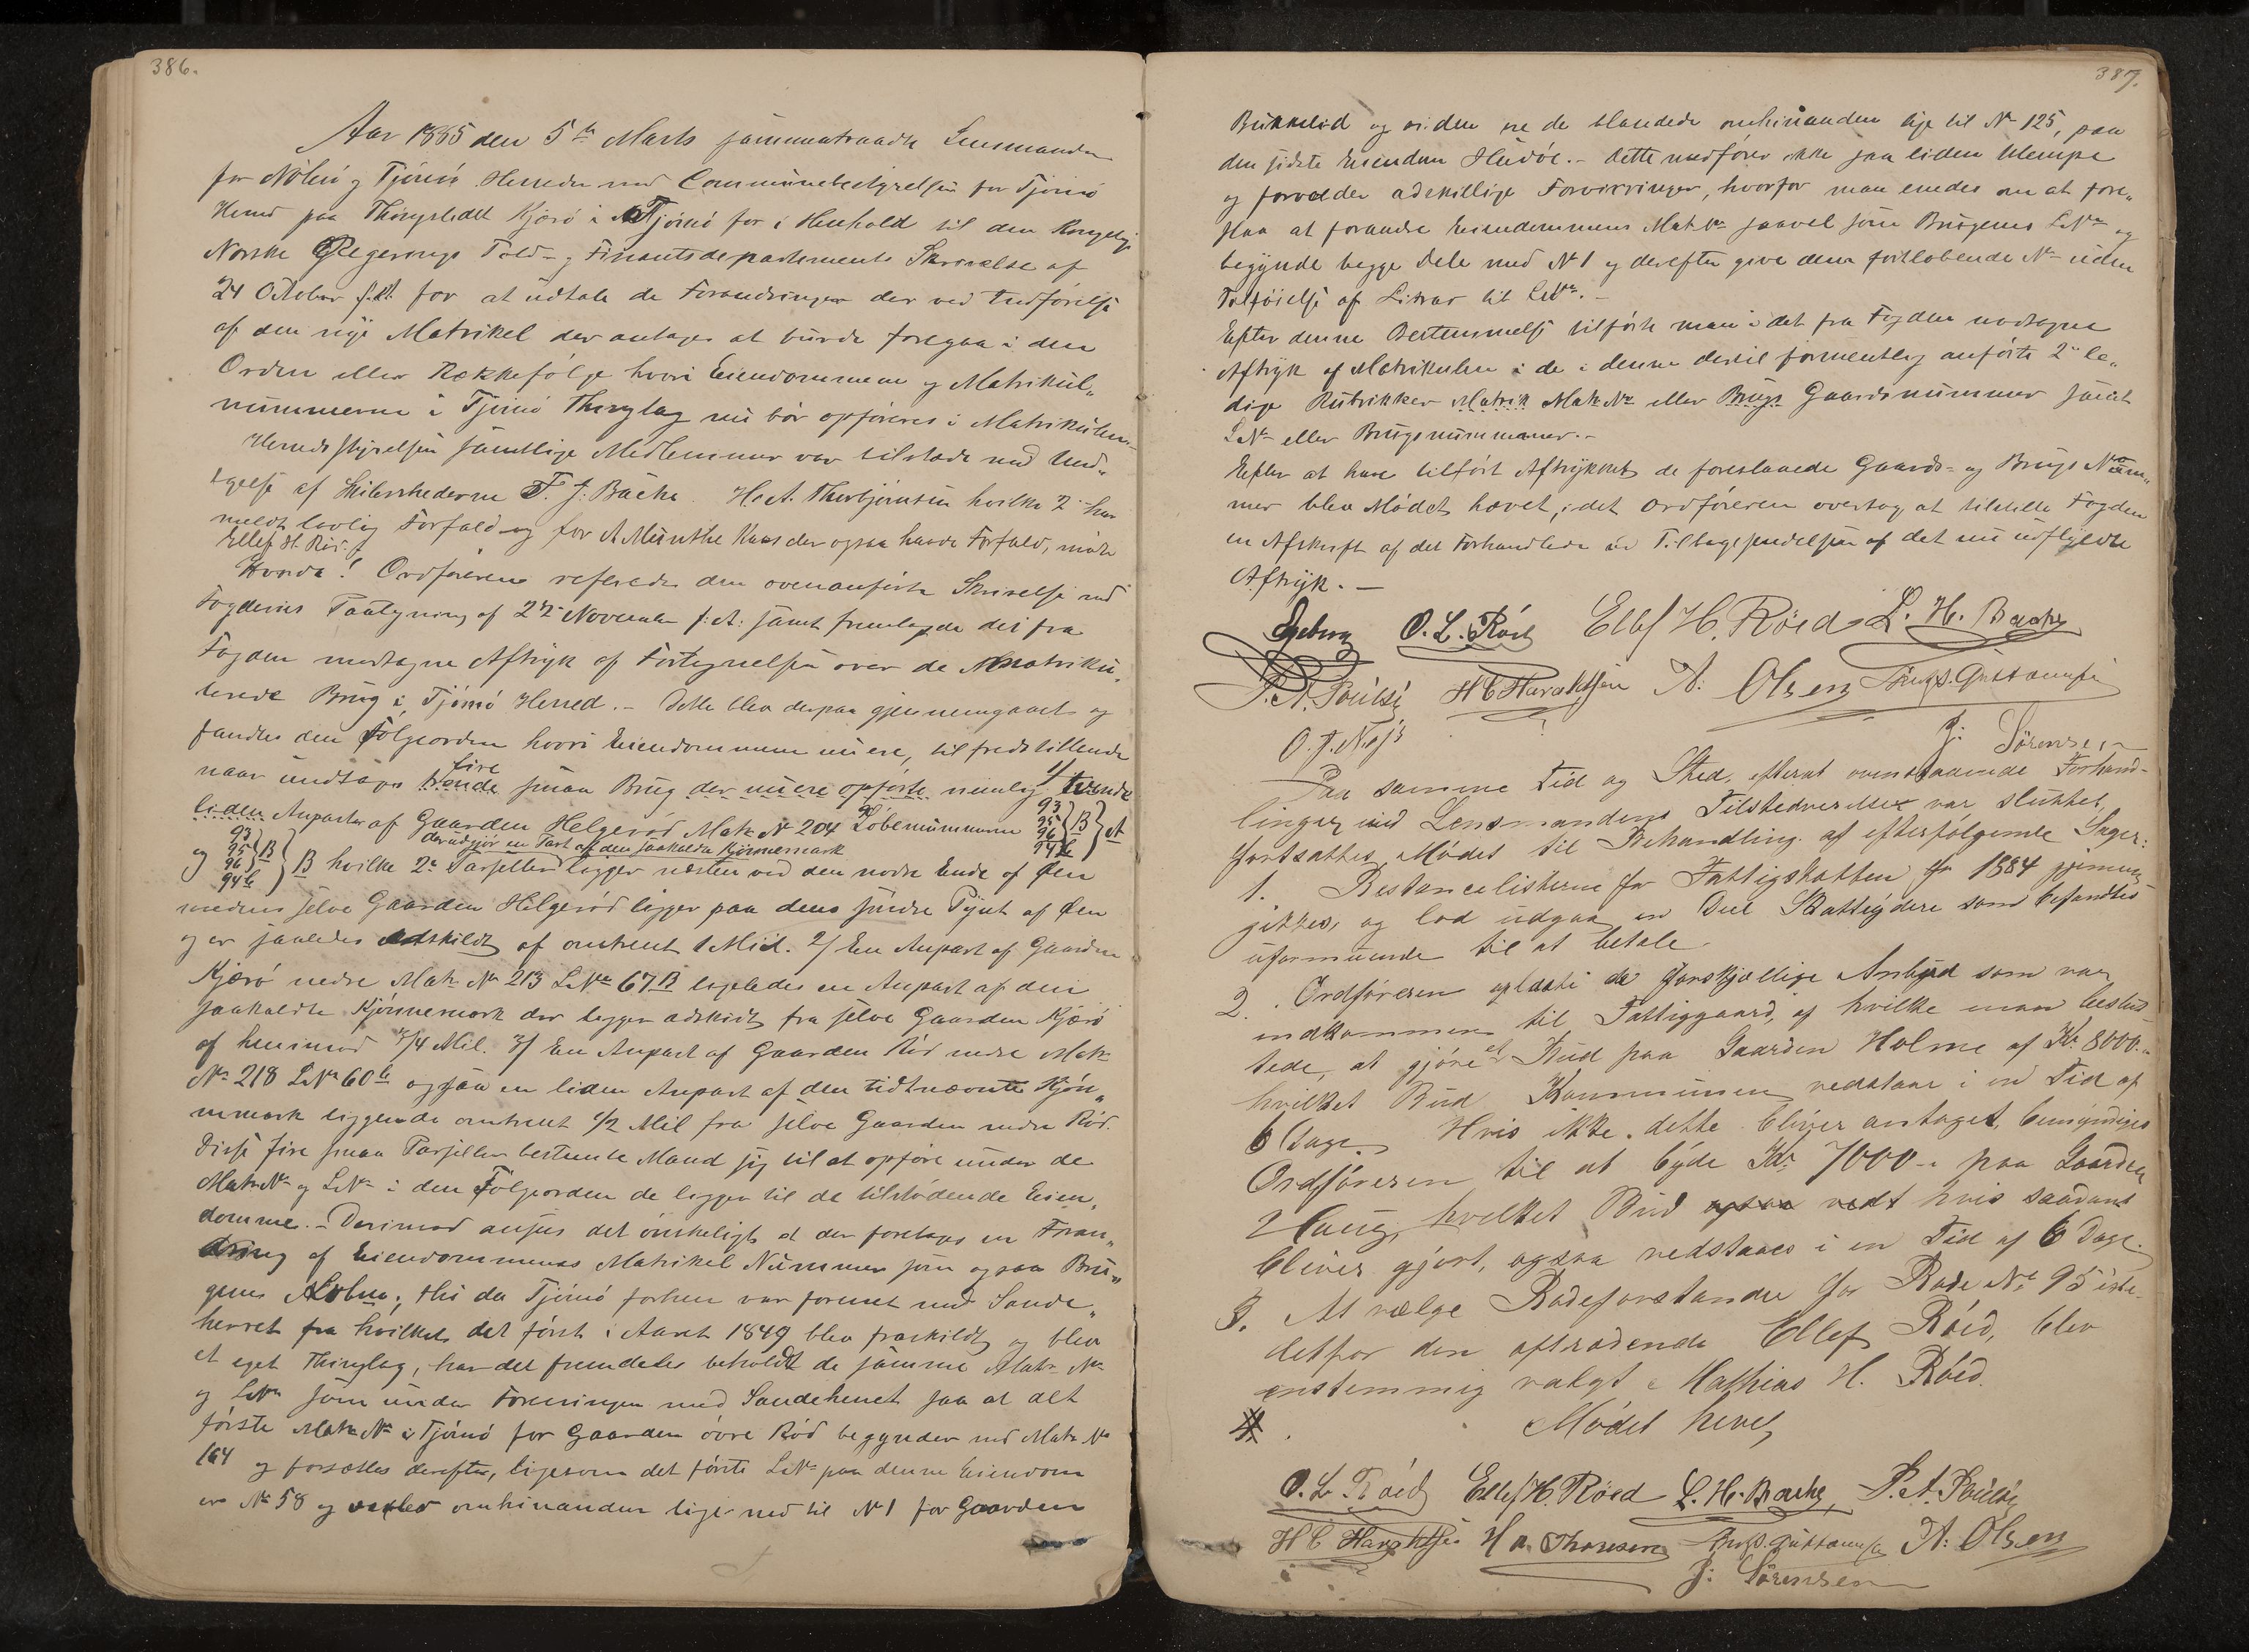 386.
Aar 1885 den 5te Marts sammentraadte Lensmanden
for Nøtterø og Tjømø Herreder med Communebestyrelsen for Tjømø
Herred paa Thingstedet Kjærø i Tjømø for i Henhold til den Kongelige
Norske Regjerings Told- og Finantsdepartements Skrivelse af
24 October f. A. for at udtale de Forandringer der ved Indførelse
af den nye Matrikel der antages at burde foregaa i den
Orden eller Rækkefølge hvori Eiendommene og Matrikul„
nummerne i Tjømø Thinglag nu bør opføres i Matrikulen.
Herredsstyrelsen samtlige Medlemmer var tilstede med Und„
tagelse af F. J. Bache H. A. Thorbjørnsen hvilke 2 har
meldt lovlig Forfald og for A Munthe Kaas der ogsaa havde Forfald, mødte
Ellef H. Røed
Ordføreren refererede den ovenanførte Skrivelse med
Fogderiets Paategning af 22 November f. A. samt fremlagde det fra
Fogden modtagne Aftryk af Fortegnelsen over de Matriku„
lerede Brug i Tjømø Herred. - Dette blev derpaa gjennemgaaet og
fandtes den Følgeorden hvori Eiendommene nu ere, tilfredsstillende
fire
naar undtages smaa Brug der nu ere opførte nemlig 1/ tvende
liden Anparter af Gaarden Helgerød Matr No 204 Løbenummerne 93 95 96 94b B A
derudgjør en Part af den saakaldte Kjønnemark
og 93 95 96 94b B B hvilke 2 Parseller ligger næsten ved den nordre Ende af Øen
medens selve Gaarden Helgerød ligger paa dens søndre Pynt af Øen
og er saaledes adskildt af omtrent 1 Mil. 2/ En Anpart af Gaarden
Kjærø nedre Matr No 213 LNo 67B ligeledes en Anpart af den
saakaldte Kjønnemark der ligger adskildt fra selve Gaarden Kjærø
af henimod 3/4 Mil. 3/ En Anpart af Gaarden Rød nedre Matr
No 218 LNo 60b ogsaa en liden Anpart af den tidtnævnte Kjøn„
nemark liggende omtrent 1/2 Mil fra selve Gaarden nedre Rød.
Disse fire smaa Parseller bestemte Mand sig til at opføre under de
MatrNo og LNo i den Følgeorden de ligger til de tilstødende Eien„
domme. - Derimod ansees det ønskeligt at der foretages en Foran„
dring af Eiendommenes Matrikel Nummer som ogsaa Bru„
genes Løbno; thi da Tjømø forhen var forenet med Sande„
herret fra hvilket det først i Aaret 1849 blev fraskildt og blev
et eget Thinglag, har det fremdeles beholdt de samme Matr No
og LNo som under Foreningen med Sandeherret saa at det
første Matr No i Tjømø for Gaarden øvre Rød begynder med Matr No
164 og forsættes derefter, ligesom det første LNo paa denne Eiendom
er No 58 og omhinanden lige ned til No 1 for Gaarden
387.
Bukkelid og siden ere de blandede omhinanden lige til No 125, paa
den sidste Eiendom Hudøe. - Dette medfører ikke saa liden Ulempe
og forvolder adskillige Forvirringer, hvorfor man enedes om at fore„
slaa at forandre Eiendommenes MatrNo saavel som Brugenes LNo og
begynde begge Dele med No 1 og derefter give dem fortløbende No uden
Tilføielse af Litrar til LNo. -
Efter denne Bestemmelse tilførte man i det fra Fogden modtagne
Aftryk af Matrikulen i de i denne dertil formentlig anførte 2 le„
dige Rubrikker Matrik MatrNo eller Brugs Gaardsnummer samt
LNo eller Brugsnummer. -
Efter at have tilført Aftrykket de foreslaaede Gaards- og Brugs Num„
mer blev Mødet hævet, idet Ordføreren overtog at tilstille Fogden
en Afskrift af det Forhandlede ved Tilbagesendelsen af det nu udfyldte
Aftryk. -
Egeberg O. L. Röed Ellef H. Röed L. H. Bache
P. A. Poulsen H C Haraldsen A. Olsen Gustavsen
O. J. Næss
J: Sörensen
Paa samme Tid og Sted, efterat ovenstaaende Forhand-
linger ved Lensmandens Tilstedeverelse var sluttet,
fortsattes Mødet til Behandling af efterfølgende Sager:
1. Restancelisterne for Fattigskatten for 1884 gjennem
gikkes, og lod udgaa en Deel Skatteydere som befandtes
uformuende til at betale.
2. Ordføreren oplæste de forskjællige Anbud som var
indkommen til Fattiggaard, af hvilke man beslut-
tede, at gjøre et Bud paa Gaarden Holme af Kr 8000.„
hvilket Bud Kommunen vedstaar i en Tid af
6 Dage. Hvis ikke dette bliver antaget, bemyndiges
Ordføreren til at byde Kr 7000„ paa Gaarden
Haug, hvilket Bud ogsaa vedt hvis saadant
bliver gjort, ogsaa vedstaaes i en Tid af 6 Dage.
3. At vælge Rodeforstander for Rode No 95 iste-
detfor den aftrædende Ellef Röed, blev
enstemmig valgt Mathias H. Röed.
Mödet hevet
O. L. Röed Ellef H. Röed L. H. Bache, P. A. Poulsen
H C Haraldsen H A. Thoresen Gustavsen A. Olsen
J: Sörensen